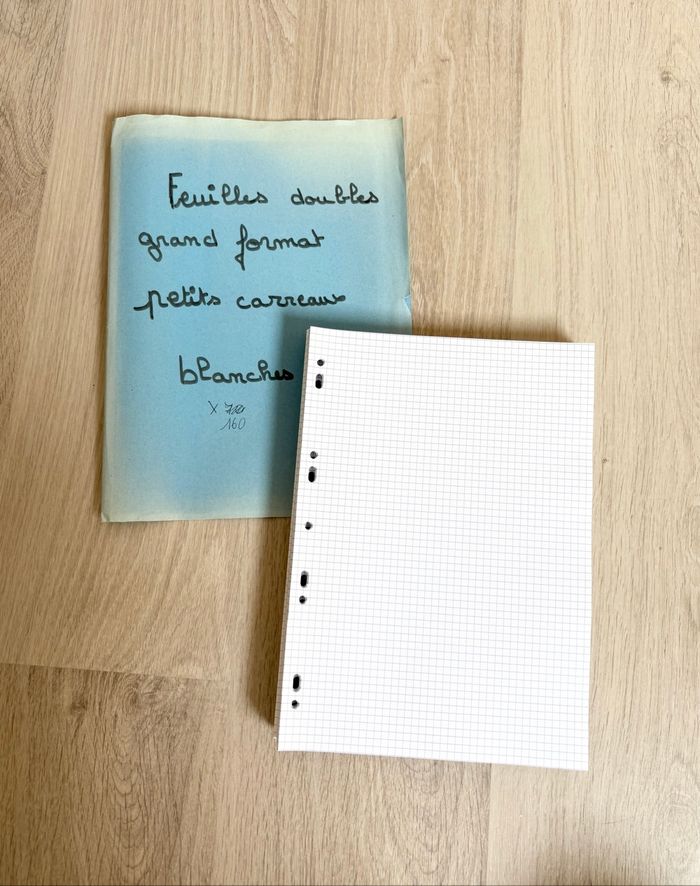 Feuilles doubles
grand format
petits carreaux
blanches
X
160